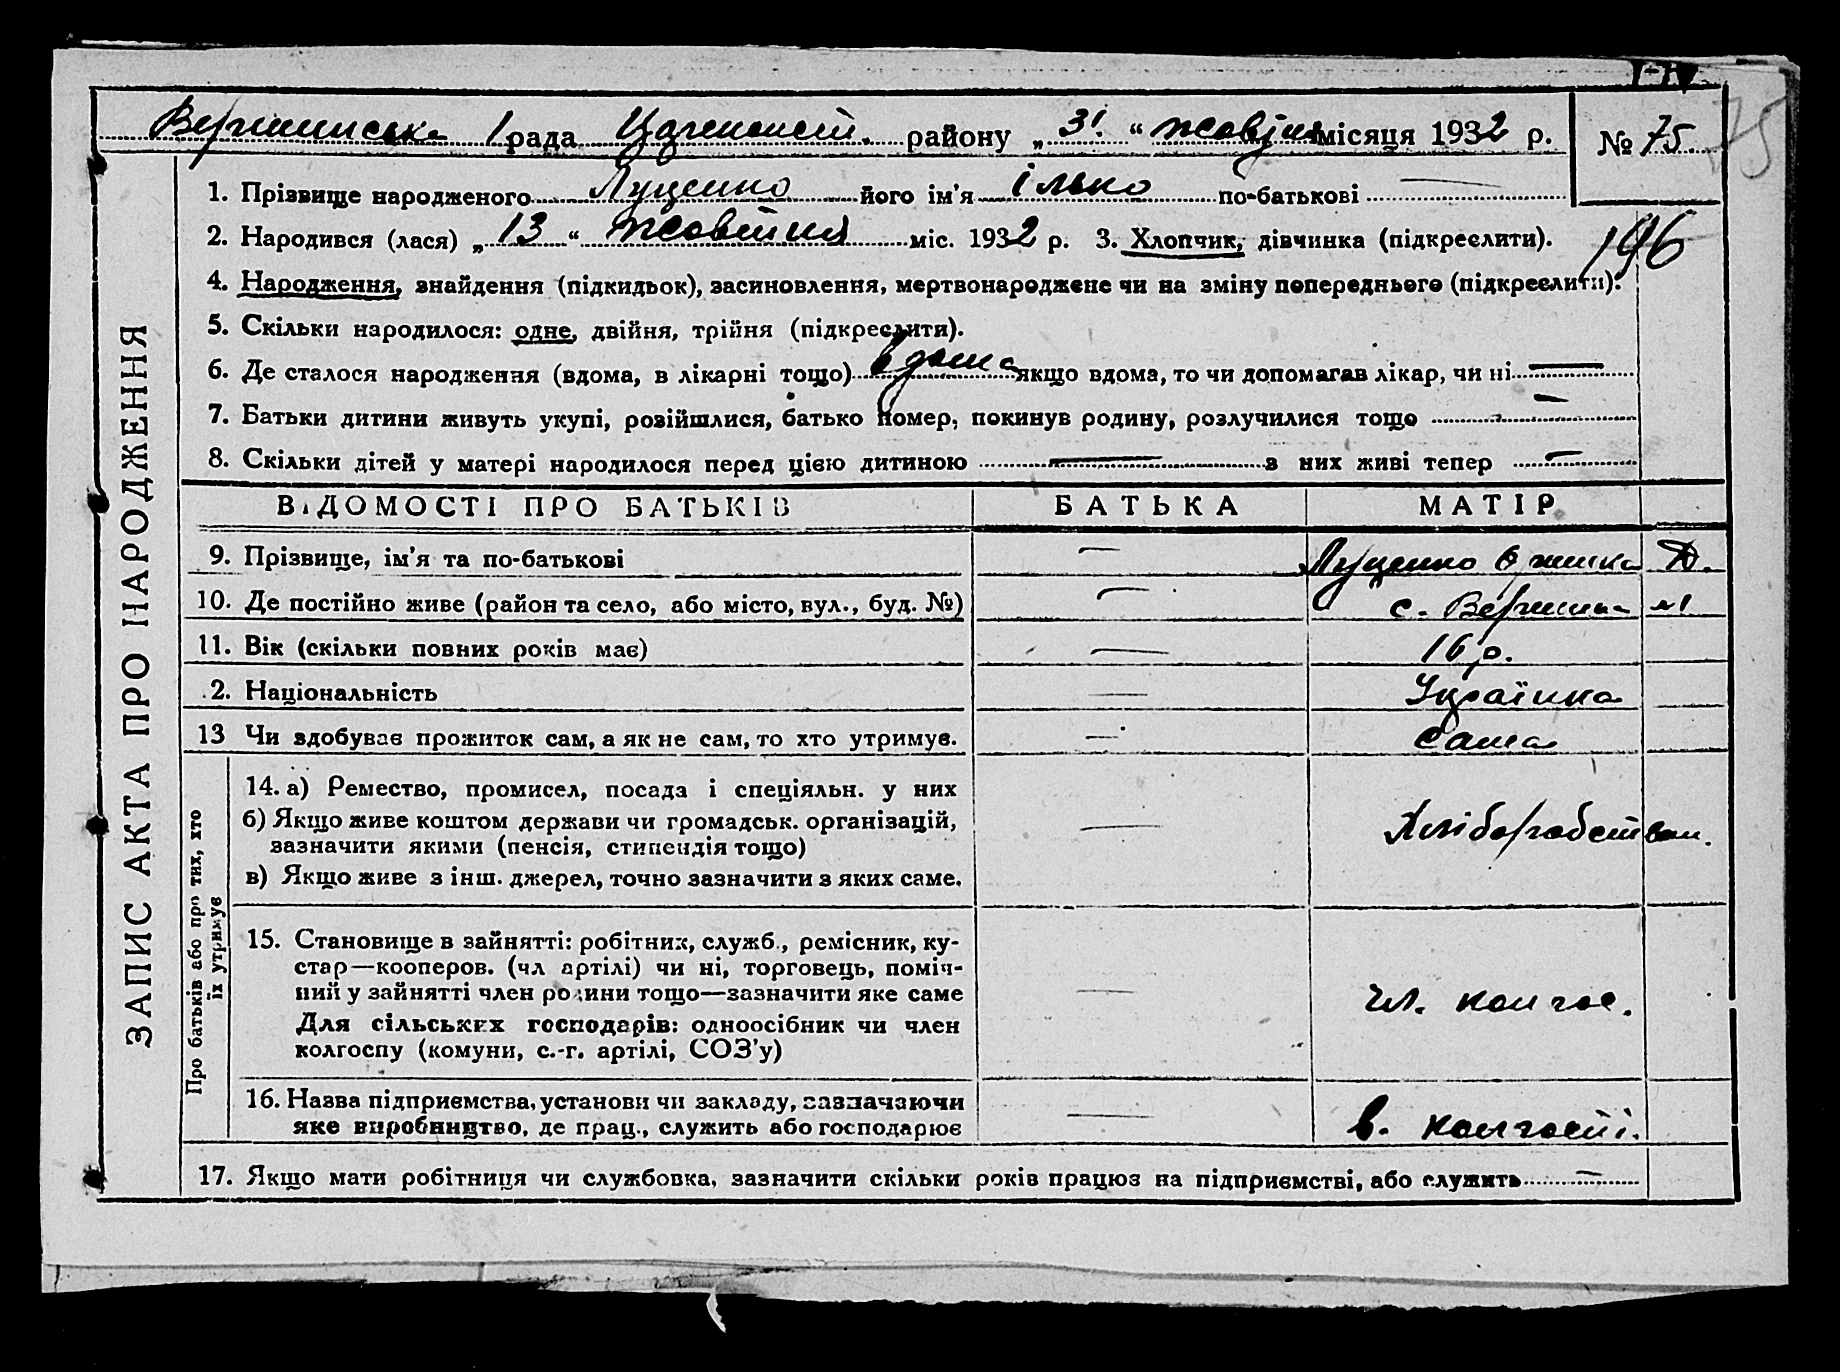 Вершинська /рада Царичанськ. району „31.“ жовтня місяця 1932 р. № 75
75
1. Прізвище народженого Луценко його ім'я ілько по-батькові —
2. Народився (лася) „13“ жовтня міс. 1932 р. 3. Хлопчик, дівчинка (підкреслити).
196
4. Народження, знайдення (підкидьок), засиновлення, мертвонароджене чи на зміну попереднього (підкреслити).
5. Скільки народилося: одне, двійня, трійня (підкреслити).
6. Де сталося народження (вдома, в лікарні тощо) вдома якщо вдома, то чи допомагав лікар, чи ні —
7. Батьки дитини живуть укупі, розійшлися, батько помер, покинув родину, розлучилися тощо —
8. Скільки дітей у матері народилося перед цією дитиною — з них живі тепер —
ЗАПИС АКТА ПРО НАРОДЖЕННЯ
ВІДОМОСТІ ПРО БАТЬКІВ БАТЬКА МАТІР
9. Прізвище, ім'я та по-батькові — Луценко
10. Де постійно живе (район та село, або місто, вул., буд. №) — с. Вершина
11. Вік (скільки повних років має) — 16 р.
2. Національність — Українка
13 Чи здобуває прожиток сам, а як не сам, то хто утримує. — Сама
Про батьків або про тих, хто
їх утримує
14. а) Ремество, промисел, посада і спеціяльн. у них
б) Якщо живе коштом держави чи громадськ. організацій, — Хліборобством.
зазначити якими (пенсія, стипендія тощо)
в) Якщо живе з інш. джерел, точно зазначити з яких саме.
15. Становище в зайнятті: робітник, служб., ремісник, ку-
стар—кооперов. (чл артілі) чи ні, торговець, поміч-
ний у зайнятті член родини тощо—зазначити яке саме — чл. колгос.
Для сільських господарів: одноосібник чи член
колгоспу (комуни, с.-г. артілі, СОЗ'у)
16. Назва підприємства, установи чи закладу, зазначаючи
яке виробництво, де прац., служить або господарює — в. колгоспі.
17. Якщо мати робітниця чи службовка, зазначити скільки років працює на підприємстві, або служить —